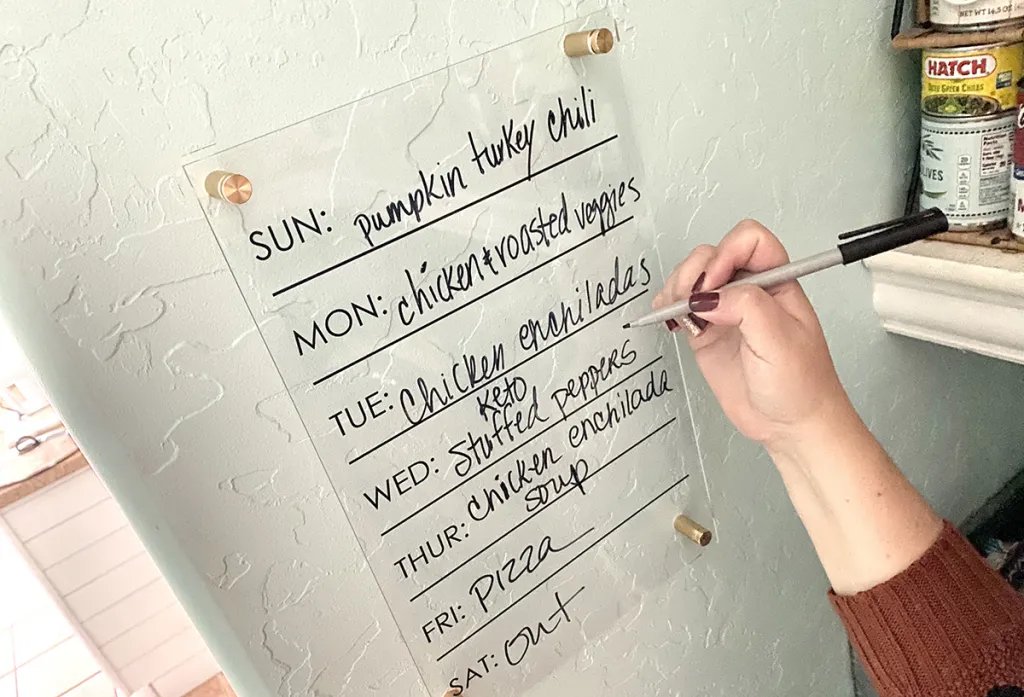 SUN: pumpkin turkey chili
MON: chicken & roasted veggies
TUE: chicken enchiladas
keto
WED: stuffed peppers
THUR: chicken enchilada
soup
FRI: pizza
SAT: out
HATCH
GREEN CHILES